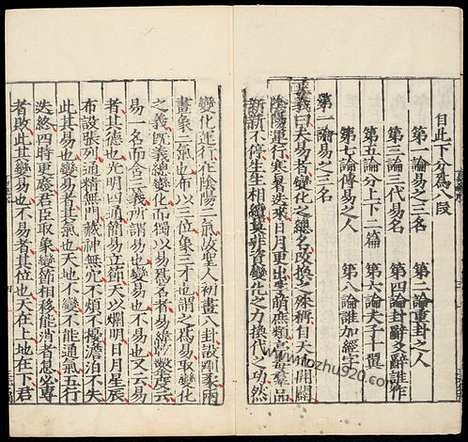 自此下分爲八段
第一論易之三名 第二論重卦之人
第三論三代易名 第四論卦辭爻辭誰作
第五論分上下二篇 第六論夫子十翼
第七論傳易之人 第八論誰加經字
第一論易之三名
正義曰夫易者變化之總名改換之殊稱自天地開闢
陰陽運行寒暑迭來日月更出孚萌庶類亭毒羣品
新新不停生生相續莫非資變化之力換代之功然
變化運行在陰陽二氣故聖人初畫八卦設剛柔兩
畫象二氣也布以三位象三才也謂之
之義旣義總變化而獨以易爲名者易緯乾鑿度云
易一名而含三義所謂易也變易也不易也又云易
者其德也光明四通簡易立節天以爛明日月星辰
布設張列通精無門藏神無穴不煩不擾澹泊不失
此其易也變易者其氣也天地不變不能通氣五行
迭終四時更廢君臣取象變節相移能消者息必專
者敗此其變易也不易者其位也天在上地在下君
www.tozhu920.com